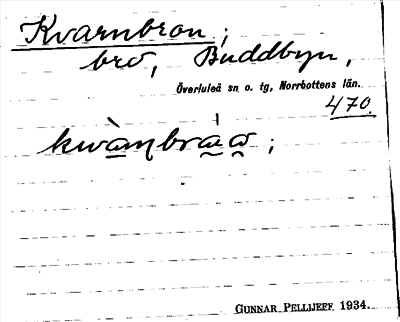 Kvarnbron;
bro, Buddbyn,
Överluleå sn o. tg, Norrbottens län.
470.
GUNNAR PELLIJEFF 1934.